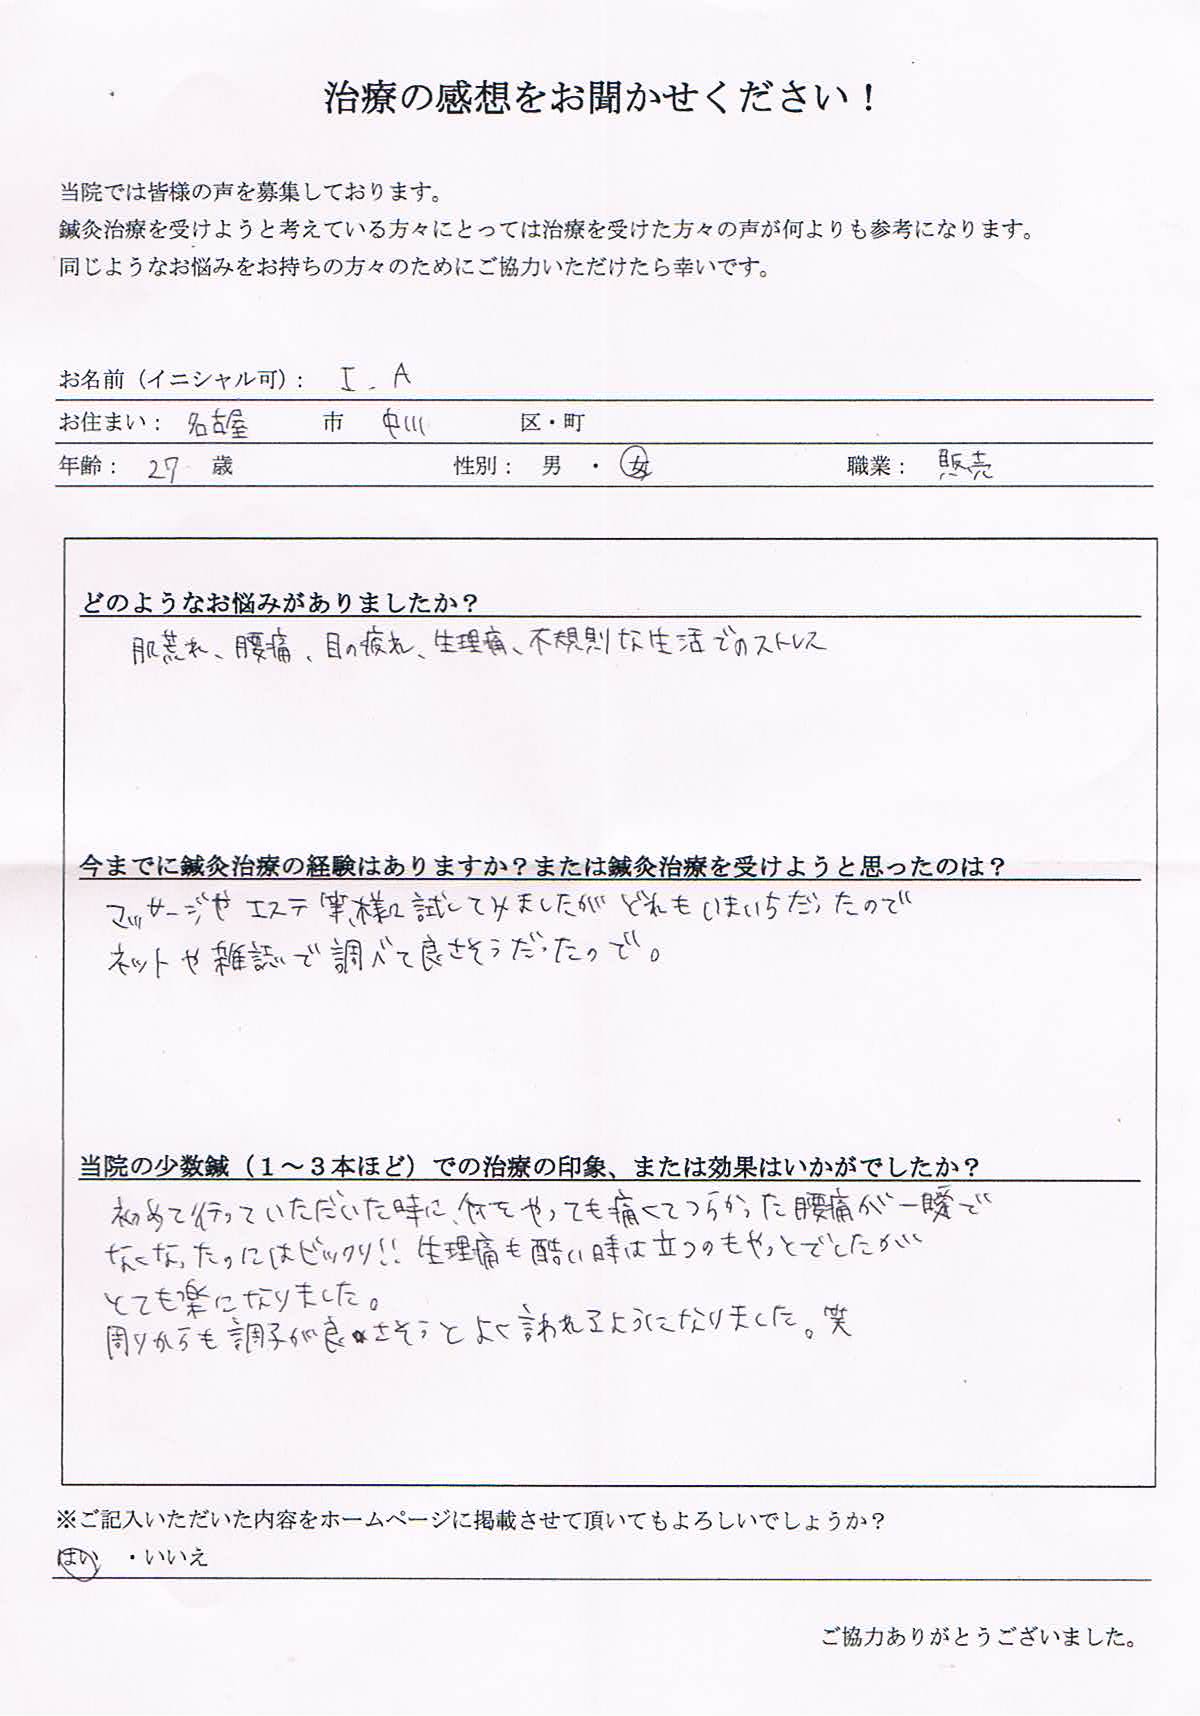 治療の感想をお聞かせください！
当院では皆様の声を募集しております。
鍼灸治療を受けようと考えている方々にとっては治療を受けた方々の声が何よりも参考になります。
同じようなお悩みをお持ちの方々のためにご協力いただけたら幸いです。
お名前（イニシャル可）： I.A
お住まい： 名古屋 市 中川 区・町
年齢： 27 歳 性別： 男 ・ 女 職業： 販売
どのようなお悩みがありましたか？
肌荒れ、腰痛、目の疲れ、生理痛、不規則な生活でのストレス
今までに鍼灸治療の経験はありますか？または鍼灸治療を受けようと思ったのは？
マッサージやエステ等、様々試してみましたがどれもいまいちだったので
ネットや雑誌で調べて良さそうだったので。
当院の少数鍼（１～３本ほど）での治療の印象、または効果はいかがでしたか？
初めて行っていただいた時に、何をやっても痛くてつらかった腰痛が一瞬で
なくなったのにはビックリ!! 生理痛も酷い時は立つのもやっとでしたが
とても楽になりました。
周りからも調子が良さそうとよく言われるようになりました。笑
※ご記入いただいた内容をホームページに掲載させて頂いてもよろしいでしょうか？
はい ・いいえ
ご協力ありがとうございました。